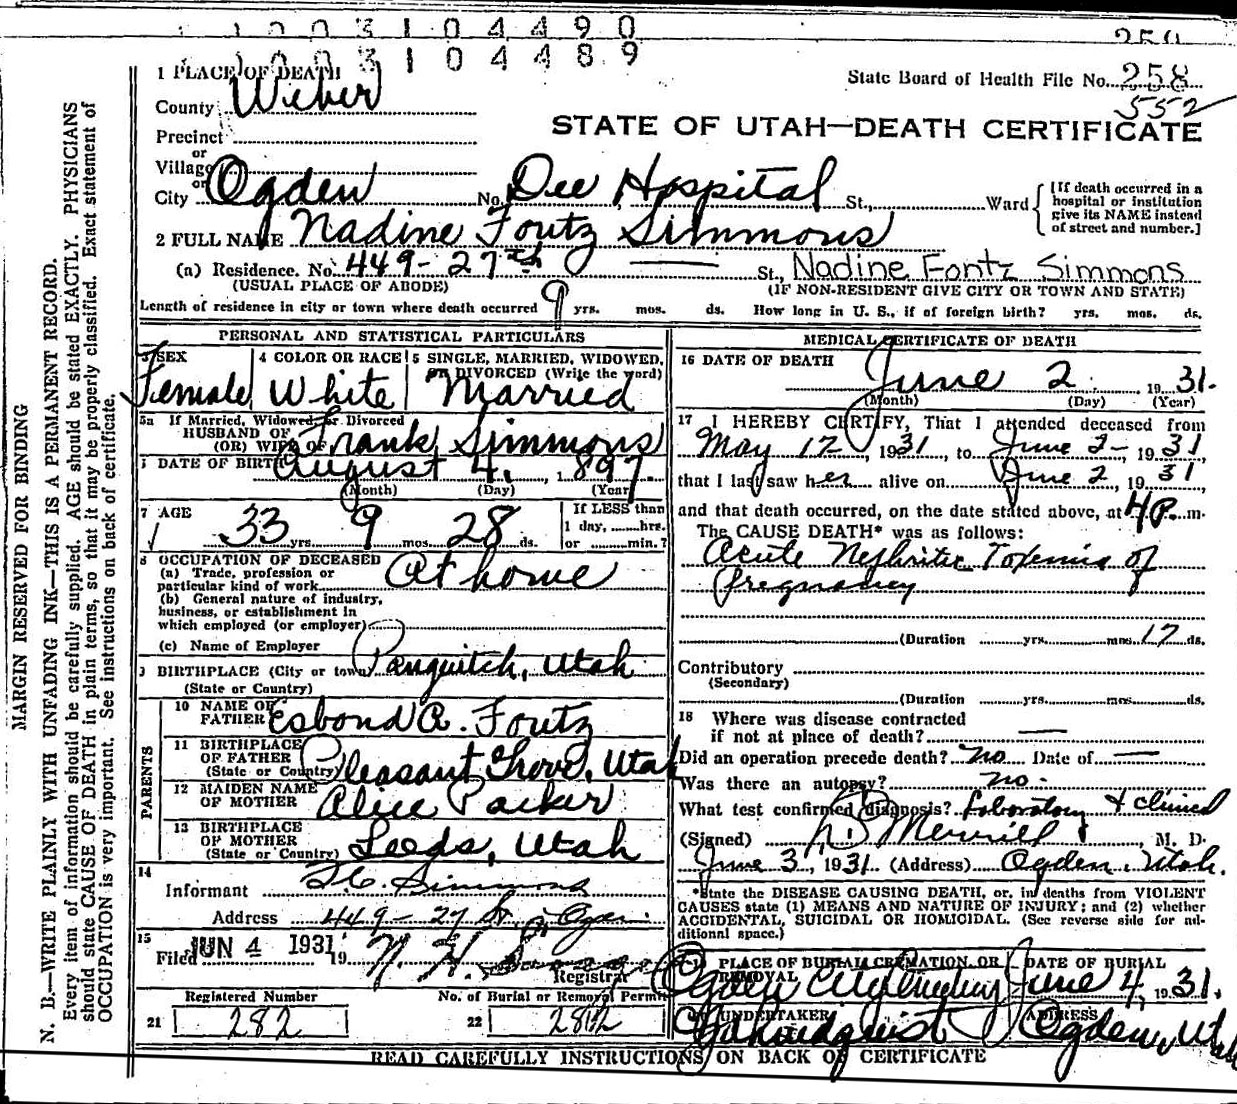 1 0 0 3 1 0 4 4 9 0
1 0 0 3 1 0 4 4 8 9
250
1 PLACE OF DEATH
State Board of Health File No. 258
552
County Weber
STATE OF UTAH—DEATH CERTIFICATE
Precinct
or
Village
or
City Ogden No. Dee Hospital St., Ward
[If death occurred in a hospital or institution give its NAME instead of street and number.]
2 FULL NAME Nadine Foutz Simmons
(a) Residence. No. 449-27th St., Nadine Fontz Simmons
(USUAL PLACE OF ABODE) (IF NON-RESIDENT GIVE CITY OR TOWN AND STATE)
Length of residence in city or town where death occurred 9 yrs. mos. ds. How long in U. S., if of foreign birth? yrs. mos. ds.
PERSONAL AND STATISTICAL PARTICULARS
3 SEX Female
4 COLOR OR RACE White
5 SINGLE, MARRIED, WIDOWED, OR DIVORCED (Write the word)
Married
5a If Married, Widowed, or Divorced
HUSBAND OF
(OR) WIFE OF Frank Simmons
6 DATE OF BIRTH August 4, 1897.
(Month) (Day) (Year)
7 AGE 33 yrs. 9 mos. 28 ds.
If LESS than
1 day, ......hrs.
or ........min.?
8 OCCUPATION OF DECEASED
(a) Trade, profession or
particular kind of work At home
(b) General nature of industry,
business, or establishment in
which employed (or employer)
(c) Name of Employer
9 BIRTHPLACE (City or town) Panguitch, Utah
(State or Country)
PARENTS
10 NAME OF
FATHER Esbond A. Foutz
11 BIRTHPLACE
OF FATHER
(State or Country) Pleasant Grove, Utah
12 MAIDEN NAME
OF MOTHER Alice Packer
13 BIRTHPLACE
OF MOTHER
(State or Country) Leeds, Utah
14
Informant Simmons
Address 449-27 St. Ogden
15
Filed JUN 4 1931 19
Registrar
Registered Number
21 282
No. of Burial or Removal Permit
22 2812
MEDICAL CERTIFICATE OF DEATH
16 DATE OF DEATH
June 2 1931.
(Month) (Day) (Year)
17 I HEREBY CERTIFY, That I attended deceased from
May 17, 1931, to June 2-, 1931,
that I last saw her alive on June 2, 1931
and that death occurred, on the date stated above, at 4 P. m.
The CAUSE DEATH* was as follows:
Acute Nephritic Toxemia of
pregnancy
(Duration yrs. mos. 17 ds.
Contributory
(Secondary)
(Duration yrs. mos. ds.
18 Where was disease contracted
if not at place of death? —
Did an operation precede death? no Date of —
Was there an autopsy? no.
What test confirmed diagnosis? Laboratory & clinical
(Signed) Merrill, M. D.
June 3, 1931 (Address) Ogden, Utah.
*State the DISEASE CAUSING DEATH, or, in deaths from VIOLENT
CAUSES state (1) MEANS AND NATURE OF INJURY; and (2) whether
ACCIDENTAL, SUICIDAL OR HOMICIDAL. (See reverse side for ad-
ditional space.)
19 PLACE OF BURIAL CREMATION, OR
REMOVAL
Ogden City Cemetery
DATE OF BURIAL
June 4, 1931.
UNDERTAKER
ADDRESS
Ogden, Utah
READ CAREFULLY INSTRUCTIONS ON BACK OF CERTIFICATE
MARGIN RESERVED FOR BINDING
N. B.—WRITE PLAINLY WITH UNFADING INK—THIS IS A PERMANENT RECORD.
Every item of information should be carefully supplied. AGE should be stated EXACTLY. PHYSICIANS
should state CAUSE OF DEATH in plain terms, so that it may be properly classified. Exact statement of
OCCUPATION is very important. See instructions on back of certificate.